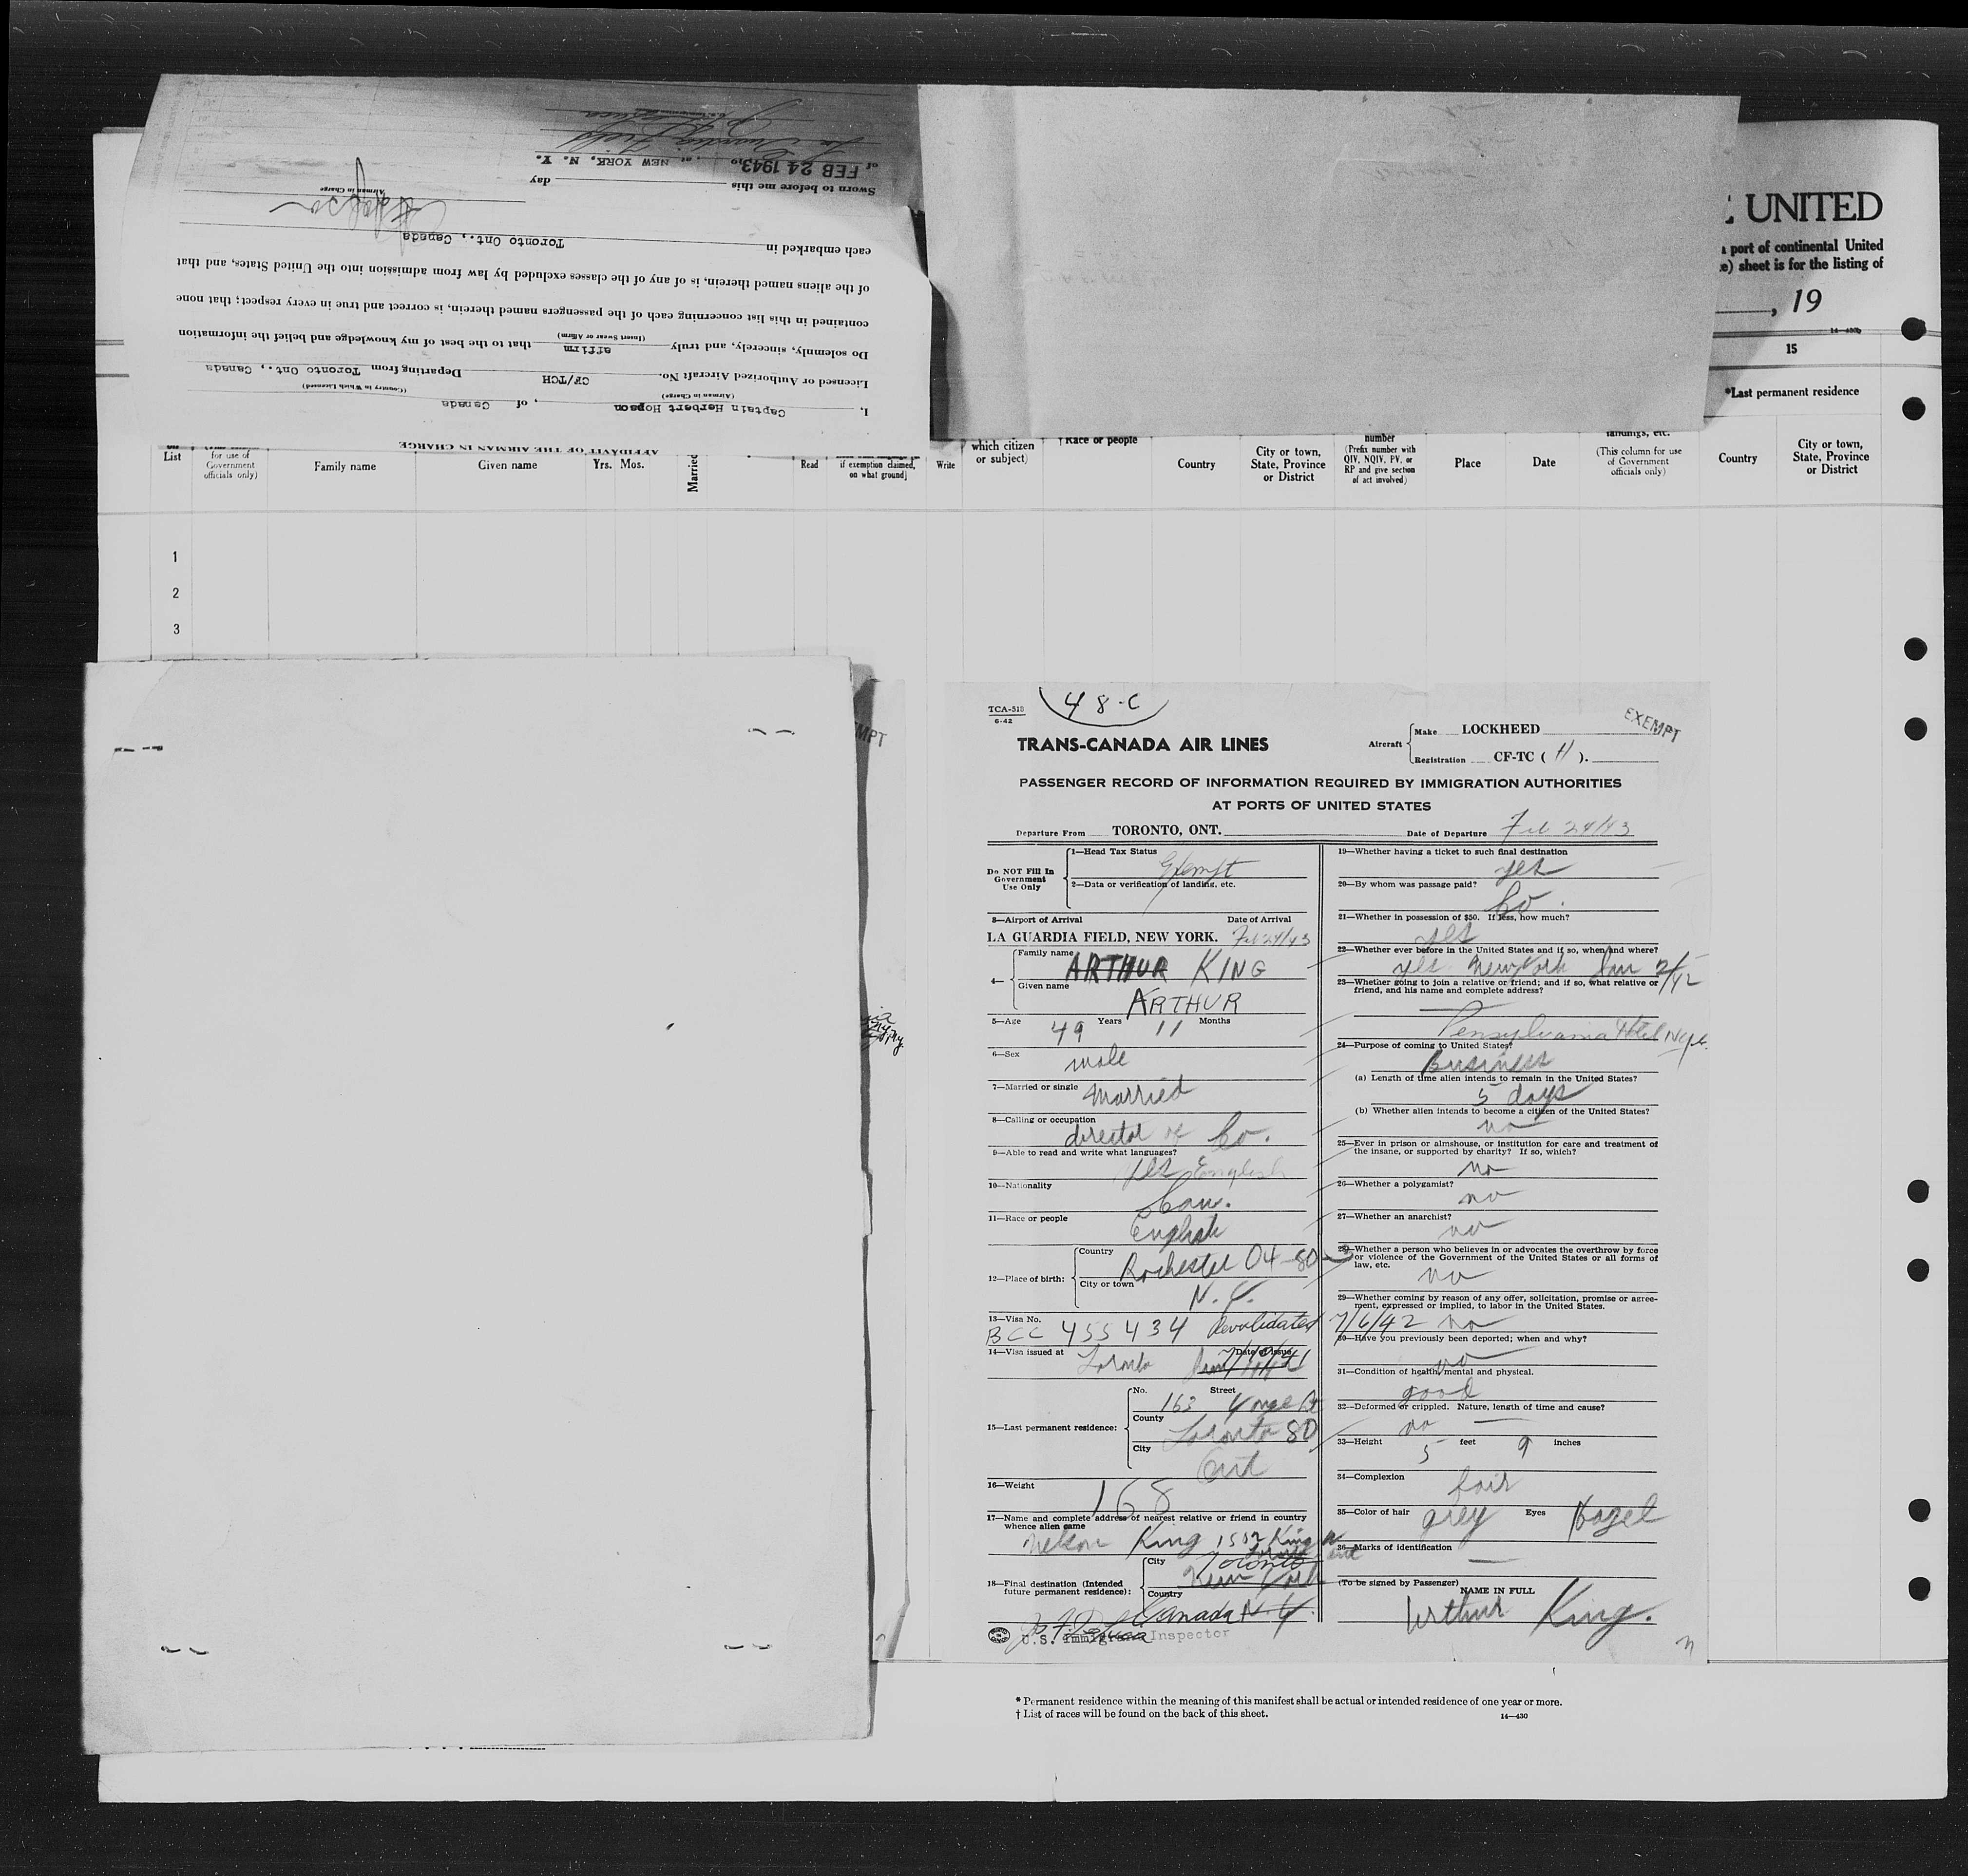 AFFIDAVIT OF THE AIRMAN IN CHARGE
I, Captain Herbert Hopson, of Canada
(Airman in Charge) (Country in Which Licensed)
Licensed or Authorized Aircraft No. CF/TCH Departing from Toronto Ont., Canada
Do solemnly, sincerely, and truly affirm that to the best of my knowledge and belief the information
(Insert Swear or Affirm)
contained in this list concerning each of the passengers named therein, is correct and true in every respect; that none
of the aliens named therein, is of any of the classes excluded by law from admission into the United States, and that
each embarked in Toronto Ont., Canada
Airman in Charge
Sworn to before me this day
of FEB 24 1943, at NEW YORK, N. Y.
La Guardia Field
UNITED
a port of continental United
sheet is for the listing of
, 19
14-430
15
*Last permanent residence
List
for use of
Government
officials only)
Family name
Given name
Yrs. Mos.
Married
Read
if exemption claimed,
on what ground]
Write
which citizen
or subject)
†Race or people
Country
City or town,
State, Province
or District
number
(Prefix number with
QIV, NQIV, PV, or
RP and give section
of act involved)
Place
Date
landings, etc.
(This column for use
of Government
officials only)
Country
City or town,
State, Province
or District
1
2
3
MPT
TCA-518
6-42
48-C
TRANS-CANADA AIR LINES
Aircraft
Make LOCKHEED
Registration CF-TC ( H ).
EXEMPT
PASSENGER RECORD OF INFORMATION REQUIRED BY IMMIGRATION AUTHORITIES
AT PORTS OF UNITED STATES
Departure From TORONTO, ONT. Date of Departure Feb 24/43
Do NOT Fill In
Government
Use Only
1—Head Tax Status Exempt
2—Data or verification of landing, etc.
3—Airport of Arrival Date of Arrival
LA GUARDIA FIELD, NEW YORK. Feb 24/43
4— Family name ARTHUR KING
Given name ARTHUR
5—Age 49 Years 11 Months
6—Sex male
7—Married or single Married
8—Calling or occupation
director of Co.
9—Able to read and write what languages?
Yes English
10—Nationality Can.
11—Race or people English
12—Place of birth:
Country Rochester 04-80-3
City or town N.Y.
13—Visa No.
BCC 455434 Revalidated 7/6/42
14—Visa issued at Toronto Date of Issue
15—Last permanent residence:
No. 163 Street Yonge St
County Toronto 80
City Ont
16—Weight 168
17—Name and complete address of nearest relative or friend in country
whence alien came
Nelson King 1502 King W
Toronto Ont
18—Final destination (Intended
future permanent residence):
City Toronto New York
Country Canada N.Y.
U.S. Immigrant Inspector
19—Whether having a ticket to such final destination
yes
20—By whom was passage paid?
Co.
21—Whether in possession of $50. If less, how much?
yes
22—Whether ever before in the United States and if so, when and where?
yes New York Jan 2/42
23—Whether going to join a relative or friend; and if so, what relative or
friend, and his name and complete address?
Pensylvania Hotel NYC.
24—Purpose of coming to United States?
Business
(a) Length of time alien intends to remain in the United States?
5 days
(b) Whether alien intends to become a citizen of the United States?
no
25—Ever in prison or almshouse, or institution for care and treatment of
the insane, or supported by charity? If so, which?
no
26—Whether a polygamist?
no
27—Whether an anarchist?
no
28—Whether a person who believes in or advocates the overthrow by force
or violence of the Government of the United States or all forms of
law, etc.
no
29—Whether coming by reason of any offer, solicitation, promise or agree-
ment, expressed or implied, to labor in the United States.
no
30—Have you previously been deported; when and why?
no
31—Condition of health, mental and physical.
good
32—Deformed or crippled. Nature, length of time and cause?
no
33—Height 5 feet 9 inches
34—Complexion fair
35—Color of hair grey Eyes Hazel
36—Marks of identification
(To be signed by Passenger) NAME IN FULL
Arthur King.
* Permanent residence within the meaning of this manifest shall be actual or intended residence of one year or more.
† List of races will be found on the back of this sheet.
14—430